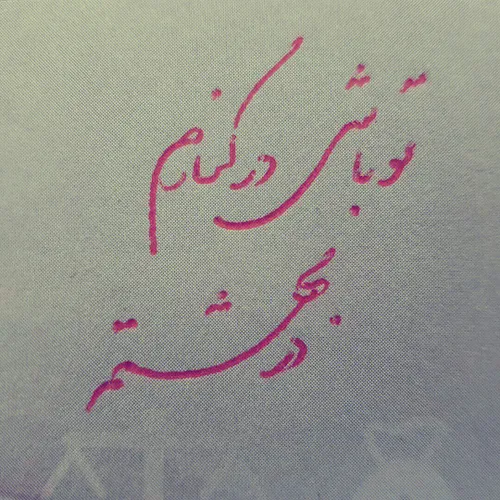 تو باشی در کنارم
در بهشتم